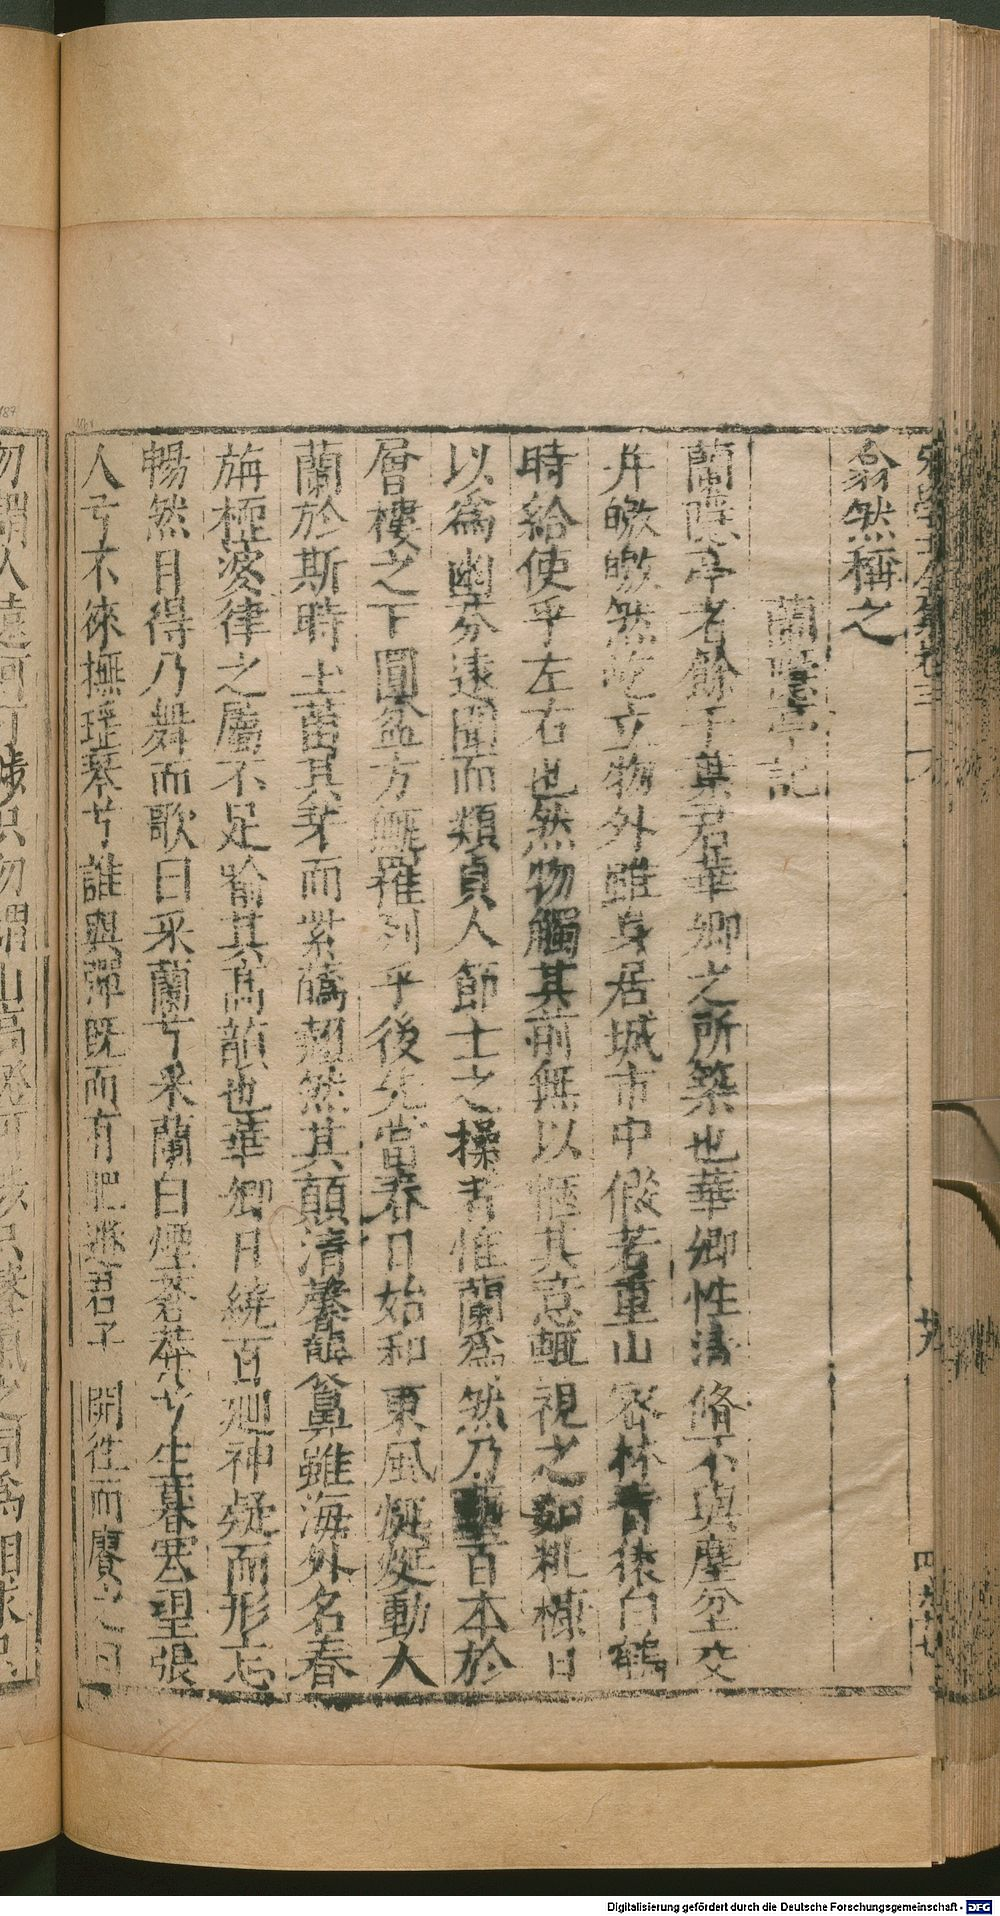 翕然稱之
蘭隱亭記
蘭隱亭者餘干葉君華卿之所築也華卿性清脩不與塵坌交
并皦皦然屹立物外雖身居城市中假若重山密林青猿白鶴
時給使乎左右也然物觸其前無以愜其意輒視之如粃糠日
以為幽芬遠聞而類貞人節士之操者惟蘭為然乃藝百本於
層樓之下圓盆方甌羅列乎後先當春日始和東風㜫娫動人
蘭於斯時土茁其芽而紫蘤翹然其顛清馨襲人鼻雖海外名春
旃極婆律之屬不足喻其高韻也華卿日繞百廻神凝而形忘
暢然自得乃舞而歌曰采蘭兮采蘭白煙蒼蒼兮生暮寒望張
人兮不徠撫瑤琴兮誰與彈既而有肥遯君子聞往而賡之曰
勿謂人遠河可涉只勿謂山高磴可
只馨氣之同為相求只
廿九
四百六十七
Digitalisierung gefördert durch die Deutsche Forschungsgemeinschaft - DFG